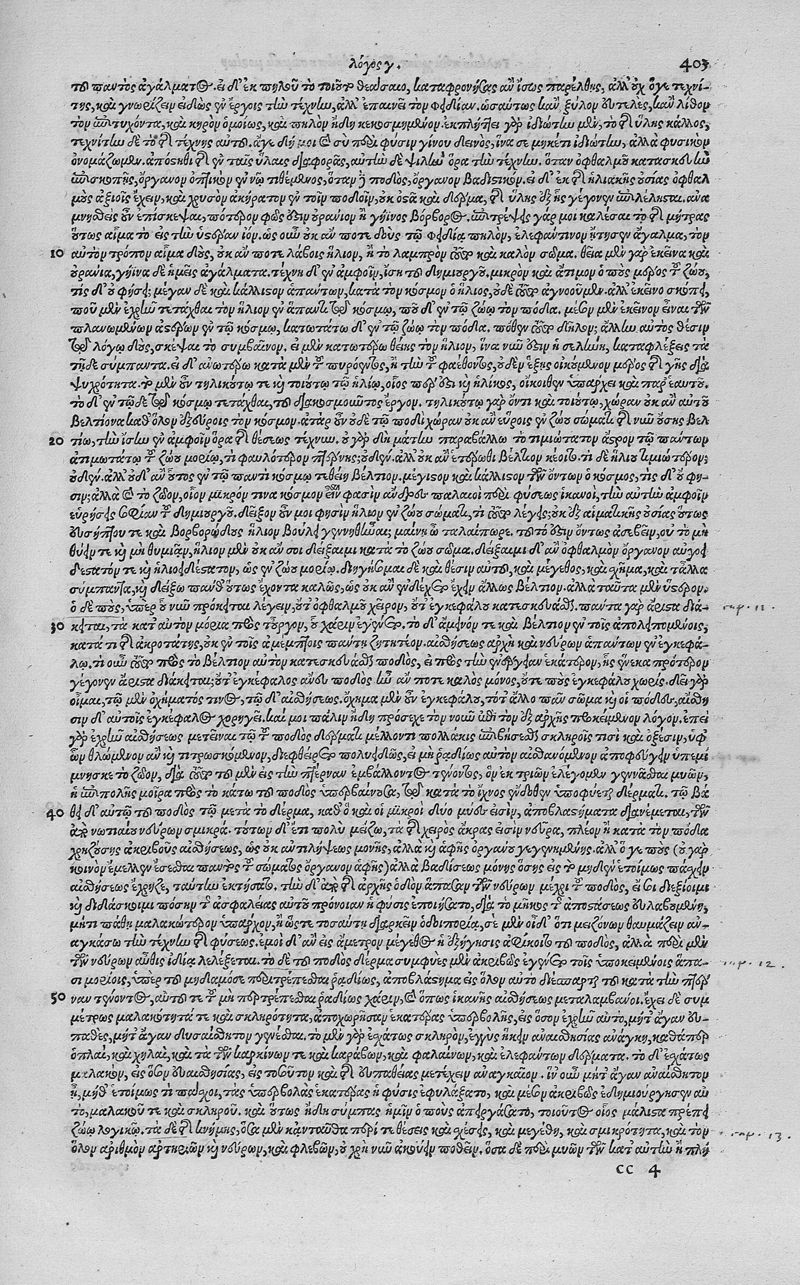 λόγος γ. 403
τοῦ παντὸς ἀγάλματος. εἰ δ' ἐκ πηλοῦ τὸ τοιοῦτο θεάσαιο, καταφρονήσας ἂν ἴσως παρέλθῃς, ἀλλ' οὐχ ὅ γε τεχνί-
της, καὶ γνωρίζειν εἰδὼς ἐν ἔργοις τὴν τέχνην, ἀλλ' ἐπαινεῖ τὸν Φειδίαν. ὡσαύτως κἂν ξύλον εὐτελὲς, κἂν λίθον
τὸν ἐπιτυχόντα, καὶ κηρὸν ὁμοίως, καὶ πηλὸν ἤδη κεκοσμημένον. ἐκπλήττει γὰρ ἰδιώτην μὲν, τὸ τῆς ὕλης κάλλος,
τεχνίτην δὲ τὸ τῆς τέχνης αὐτό. ἄγε δή μοι καὶ σὺ περὶ φύσιν γίνου δεινὸς, ἵνα σε μηκέτι ἰδιώτην, ἀλλὰ φυσικὸν
ὀνομάζωμεν. ἀπόστηθι τῆς ἐν ταῖς ὕλαις διαφορᾶς, αὐτὴν δὲ ψιλὴν ὅρα τὴν τέχνην. ὅταν ὀφθαλμοῦ κατασκευὴν
ἐπισκοπῇς, ὄργανον ὀπτικὸν ἐν νῷ τιθέμενος, ὅταν ἢ ποδὸς, ὄργανον βαδιστικόν. εἰ δ' ἐκ τῆς ἡλιακῆς οὐσίας ὀφθαλ
μοὺς ἀξιοῖς ἔχειν, καὶ χρυσὸν ἀκήρατον ἐν τοῖν ποδοῖν, οὐκ ὀστᾶ καὶ δέρμα, τῆς ὕλης ἐξ ἧς γέγονεν ἐπιλέλησαι. ἀνα
μνησθεὶς οὖν ἐπίσκεψαι, πότερον φῶς ἐστιν οὐράνιον ἢ γήϊνος βόρβορος. ἐπιτρέψεις γάρ μοι καλέσαι τὸ τῆς μήτρας
οὕτως αἷμα τὸ εἰς τὴν ὑστέραν ἰόν. ὡς οὖν οὐκ ἄν ποτε δοὺς τῷ Φειδίᾳ πηλὸν, ἐλεφάντινον ᾔτησεν ἄγαλμα, τὸν
10 αὐτὸν τρόπον αἷμα δοὺς, οὐκ ἄν ποτε λάβοις ἥλιον, ἢ τὸ λαμπρὸν τοῦτο καὶ καλὸν σῶμα. θεῖα μὲν γὰρ ἐκεῖνα καὶ
οὐράνια, γήϊνα δὲ ἡμεῖς ἀγάλματα. τέχνη δ' ἐν ἀμφοῖν, ἴση τοῦ δημιουργοῦ. μικρὸν καὶ ἄτιμον ὁ ποὺς μόριον τοῦ ζώου,
τίς δ' οὔ φησι; μέγαν δὲ καὶ κάλλιστον ἁπάντων, κατὰ τὸν κόσμον ὁ ἥλιος, οὐδὲ τοῦτο ἀγνοοῦμεν. ἀλλ' ἐκεῖνο σκόπει,
ποῦ μὲν ἐχρῆν τετάχθαι τὸν ἥλιον ἐν ἅπαντι τῷ κόσμῳ, ποῦ δ' ἐν τῷ ζώῳ τὸν πόδα. μέσον μὲν ἐκεῖνον εἶναι τῶν
πλανωμένων ἀστέρων ἐν τῷ κόσμῳ, κατωτάτω δ' ἐν τῷ ζώῳ τὸν πόδα. πόθεν τοῦτο δῆλον; ἄλλην αὐτοῖς θέσιν
τῷ λόγῳ δοὺς, σκέψαι τὸ συμβαῖνον. εἰ μὲν κατωτέρω θείης τὸν ἥλιον, ἵνα νῦν ἐστιν ἡ σελήνη, καταφλέξεις τὰ
τῇδε σύμπαντα. εἰ δ' ἀνωτέρω κατὰ μὲν τοῦ πυρόεντος, ἢ τὴν τοῦ φαέθοντος, οὐδὲν ἕξεις οἰκούμενον μέρος τῆς γῆς διὰ
ψυχρότητα. τὸ μὲν οὖν τηλικούτῳ τε καὶ τοιούτῳ τῷ ἡλίῳ, οἷός περ ἐστι καὶ ἡλίκος, οἴκοθεν ὑπάρχει καὶ παρ' ἑαυτοῦ.
τὸ δ' ἐν τῷδε τῷ κόσμῳ τετάχθαι, τοῦ διακοσμοῦντος ἔργον. τηλικούτῳ γὰρ ὄντι καὶ τοιούτῳ, χώραν οὐκ ἂν αὐτοῦ
βελτίονα καθ' ὅλον ἐξεύροις τὸν κόσμον. ἀτὰρ οὖν οὐδὲ τῷ ποδὶ χώραν οὐκ ἂν εὕροις ἐν ζώου σώματι τῆς νῦν οὔσης βελ
20 τίω, τὴν ἴσην ἐν ἀμφοῖν ὅρα τῆς θέσεως τέχνην. οὐ γὰρ δὴ μάτην παραβάλλω τὸ τιμιώτατον ἄστρον τῷ πάντων
ἀτιμωτάτῳ τοῦ ζώου μορίῳ, τί φαυλότερον πτέρνης; οὐδέν. ἀλλ' οὐκ ἂν ἑτέρωθι βέλτιον κέοιτο. τί δὲ ἡλίου τιμιώτερον;
οὐδέν. ἀλλ' οὐδ' ἂν οὗτος ἐν τῷ παντὶ κόσμῳ τεθείη βέλτιον. μέγιστον καὶ κάλλιστον τῶν ὄντων ὁ κόσμος, τίς δ' οὔ φη-
σιν; ἀλλὰ καὶ τὸ ζῶον, οἷον μικρόν τινα κόσμον εἶναι φασὶν ἄνδρες παλαιοὶ περὶ φύσεως ἱκανοὶ, τὴν αὐτὴν ἀμφοῖν
εὑρήσεις σοφίαν τοῦ δημιουργοῦ. δεῖξον οὖν μοι φησὶν ἥλιον ἐν ζώου σώματι, τί τοῦτο λέγεις; ἐξ αἱματικῆς οὐσίας οὕτως
εὐσήπτου τε καὶ βορβορώδους ἥλιον βούλει γεννηθῆναι; μαίνῃ ὦ ταλαίπωρε. τοῦτό ἐστιν ὄντως ἀσεβεῖν, οὐ τὸ μὴ
θύειν τε καὶ μὴ θυμιᾷν, ἥλιον μὲν οὐκ ἄν σοι δείξαιμι κατὰ τὸ ζώου σῶμα. δείξαιμι δ' ἂν ὀφθαλμὸν ὄργανον αὐγοει
δέστατόν τε καὶ ἡλιοειδέστατον, ὡς ἐν ζώου μορίῳ. διηγήσομαι δὲ καὶ θέσιν αὐτοῦ, καὶ μέγεθος, καὶ σχῆμα, καὶ τἄλλα
σύμπαντα, καὶ δείξω πάνθ' οὕτως ἔχοντα καλῶς, ὡς οὐκ ἐνδέχεται ἔχειν ἄλλως βέλτιον. ἀλλὰ ταῦτα μὲν ὕστερον.
ὁ δὲ ποὺς, ὑπὲρ οὗ νῦν πρόκειται λέγειν, οὔτ' ὀφθαλμοῦ χεῖρον, οὔτ' ἐγκεφάλου κατεσκεύασται. πάντα γὰρ ἄριστα διά-
30 κειται, τὰ κατ' αὐτὸν μόρια πρὸς τοὖργον, οὗ χάριν ἐγένετο. τὸ δ' ἄμεινόν τε καὶ βέλτιον ἐν τοῖς ἀπολειπομένοις,
κατά τι τῆς ἀκρότητος, οὐκ ἐν τοῖς ἀμέμπτοις πάντῃ ζητητέον. αἰσθήσεως ἀρχὴ καὶ νεύρων ἁπάντων ἐν ἐγκεφά-
λῳ. τί οὖν τοῦτο πρὸς τὸ βέλτιον αὐτὸν κατεσκευάσθαι ποδὸς, εἰ πρὸς τὴν ἐνέργειαν ἑκάτερον, ἧς ἕνεκα πρότερον
γέγονεν ἄριστα διάκειται; οὔτ' ἐγκέφαλος ἄνευ ποδὸς ἦν ἄν ποτε καλὸς μόνος, οὔτε ποὺς ἐγκεφάλου χωρίς. δεῖ γὰρ
οἶμαι, τῷ μὲν ὀχήματός τινος, τῷ δ' αἰσθήσεως. ὄχημα μὲν οὖν ἐγκεφάλου, τό τ' ἄλλο πᾶν σῶμα καὶ οἱ πόδες, αἴσθη
σιν δ' αὐτοῖς ἐγκέφαλος χορηγεῖ. καί μοι πάλιν ἤδη πρόσεχε τὸν νοῦν ἐπὶ τὸν ἐξ ἀρχῆς προκείμενον λόγον. ἐπεὶ
γὰρ ἐχρῆν αἰσθήσεως μετεῖναι τῷ τοῦ ποδὸς δέρματι μέλλοντι πολλάκις ἐπιβήσεσθαι σκληροῖς τισὶ καὶ ὀξέσιν, ὑφ'
ὧν θλώμενον ἂν καὶ τιτρωσκόμενον, διεφθείρετο πολυειδῶς, εἰ μὴ ῥᾳδίως αὐτὸν αἰσθανόμενον ἀποφεύγειν ὑπεμί
μνησκε τὸ ζῶον, διὰ τοῦτο τοῦ μὲν εἰς τὴν πτέρναν ἐμβάλλοντος τένοντος, ὃν ἐκ τριῶν ἐλέγομεν γεννᾶσθαι μυῶν,
ἡ ἐπιπολῆς μοῖρα πρὸς τὸ κάτω τοῦ ποδὸς ὑπερβαίνουσα, τῷ κατὰ τὸ ἴχνος ἔνδοθεν ὑποφύεται δέρματι. τῷ βά
40 θει δ' αὐτῷ τοῦ ποδὸς τῷ μετὰ τὸ δέρμα, καθ' ὃ καὶ οἱ μικροὶ δύο μύες εἰσὶν, ἀποβλαστήματα διανέμεται, τῶν
ἀπὸ νωτιαίου νεύρων σμικρά. τούτων δ' ἔτι πολὺ μείζω, τὰ τῆς χειρὸς ἄκρας εἰσὶν νεῦρα, πλέον ἢ κατὰ τὸν πόδα
χρῃζούσης ἀκριβοῦς αἰσθήσεως, ὡς οὐκ ἀντιλήψεως μόνης, ἀλλὰ καὶ ἁφῆς ὀργάνου γεγενημένης. ἀλλ' ὅ γε ποὺς (οὐ γὰρ
κοινὸν ἔμελλεν ἔσεσθαι παντὸς τοῦ σώματος ὄργανον ἁφῆς) ἀλλὰ βαδίσεως μόνης ὅσης εἰς τὸ μηδὲν ἑτοίμως πάσχειν
αἰσθήσεως ἔχρῃζε, ταύτην ἐκτήσατο. τὴν δ' ἀπὸ τῆς ἀρχῆς ὁδὸν ἅπασαν τῶν νεύρων μέχρι τοῦ ποδὸς, εἴ σοι διεξίοιμι
καὶ διδάσκοιμι πόσην τοῦ ἀσφαλείας αὐτοῦ πρόνοιαν ἡ φύσις ἐποιήσατο, διὰ τὸ μῆκος τοῦ ἀποστάσεως εὐλαβουμένη,
μή τι πάθῃ μαλακώτερον ὑπάρχον, ἢ ὥστε τοσαύτῃ διαρκεῖν ὁδοιπορίᾳ, σὲ μὲν οἶδ' ὅτι μειζόνως θαυμάζειν ἀν-
αγκάσω τὴν τέχνην τῆς φύσεως. ἐμοὶ δ' ἂν εἰς ἄμετρον μέγεθος ἡ ἐξήγησις ἀφίκοιτο τοῦ ποδὸς, ἀλλὰ περὶ μὲν
τῶν νεύρων αὖθις ἰδίᾳ λελέξεται. τὸ δὲ τοῦ ποδὸς δέρμα συμφυὲς μὲν ἀκριβῶς ἐγένετο τοῖς ὑποκειμένοις ἅπα-
σι μορίοις, ὑπὲρ τοῦ μηδαμόσε περιτρέπεσθαι ῥᾳδίως, ἀποβλάστημα εἰς ὅλον αὐτὸ διέσπαρται τοῦ κατὰ τὴν πτέρ
50 ναν τένοντος, αὐτοῦ τε τοῦ μὴ περιτρέπεσθαι ῥᾳδίως χάριν, καὶ ὅπως ἱκανῆς αἰσθήσεως μεταλαμβάνοι. ἔχει δὲ συμ
μέτρως μαλακότητά τε καὶ σκληρότητα, ἀποχωρῆσαν ἑκατέρας ὑπερβολῆς, εἰς ὅσον ἐχρῆν αὐτὸ, μήτ' ἄγαν εὐ-
παθὲς, μήτ' ἄγαν δυσαίσθητον γενέσθαι. τὸ μὲν γὰρ ἐσχάτως σκληρὸν, ἐγγὺς ἥκειν ἀναισθησίας ἀνάγκη, καθάπερ
ὁπλαὶ, καὶ χηλαὶ, καὶ τὰ τῶν καρκίνων τε καὶ καράβων, καὶ φαλαινῶν, καὶ ἐλεφάντων δέρματα. τὸ δ' ἐσχάτως
μαλακὸν, εἰς ὅσον εὐαισθησίας, εἰς τοσοῦτον καὶ τῆς εὐπαθείας μετέχειν ἀναγκαῖον. ἵν' οὖν μήτ' ἄγαν ἀναίσθητον
ᾖ, μήθ' ἑτοίμως τι πάσχοι, τὰς ὑπερβολὰς ἑκατέρας ἡ φύσις ἐφυλάξατο, καὶ μέσον ἀκριβῶς ἐδημιούργησεν αὐ
τὸ, μαλακοῦ τε καὶ σκληροῦ. καὶ οὕτως ἤδη σύμπας ἡμῖν ὁ ποὺς ἀπειργάσατο, τοιοῦτος οἷος μάλιστα πρέπει
ζώῳ λογικῷ. τὰ δὲ τῆς κνήμης, ὅσα μὲν κἀνταῦθα περί τε θέσεις καὶ σχέσεις, καὶ μεγέθη, καὶ σμικρότητα, καὶ τὸν
ὅλον ἀριθμὸν ἀρτηριῶν καὶ νεύρων, καὶ φλεβῶν, οὐ χρὴ νῦν ἀκούειν ποθεῖν. ὅσα δὲ περὶ μυῶν τῶν κατ' αὐτὴν ἢ πλή
CC 4
cap. 11.
cap. 12.
cap. 13.